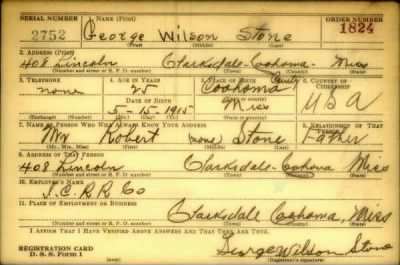 SERIAL NUMBER 1. NAME (Print) ORDER NUMBER
2752 George Wilson Stone 1824
(First) (Middle) (Last)
2. ADDRESS (Print)
408 Lincoln Clarksdale-Coahoma- Miss
(Number and street or R. F. D. number) (Town) (County) (State)
3. TELEPHONE 4. AGE IN YEARS 5. PLACE OF BIRTH 6. COUNTRY OF CITIZENSHIP
none 25 Coahoma County
DATE OF BIRTH (Town or county)
5-15-1915 Miss USA
(Exchange) (Number) (Mo.) (Day) (Yr.) (State or country)
7. NAME OF PERSON WHO WILL ALWAYS KNOW YOUR ADDRESS 8. RELATIONSHIP OF THAT PERSON
Mr Robert (none) Stone Father
(Mr., Mrs., Miss) (First) (Middle) (Last)
9. ADDRESS OF THAT PERSON
408 Lincoln Clarksdale-Cohoma Miss
(Number and street or R. F. D. number) (Town) (County) (State)
10. EMPLOYER'S NAME
I. C. R. R. Co
11. PLACE OF EMPLOYMENT OR BUSINESS
Clarksdale Coahoma, Miss
(Number and street or R. F. D. number) (Town) (County) (State)
I AFFIRM THAT I HAVE VERIFIED ABOVE ANSWERS AND THAT THEY ARE TRUE.
REGISTRATION CARD George Wilson Stone
D. S. S. Form 1 (over) (Registrant's signature)